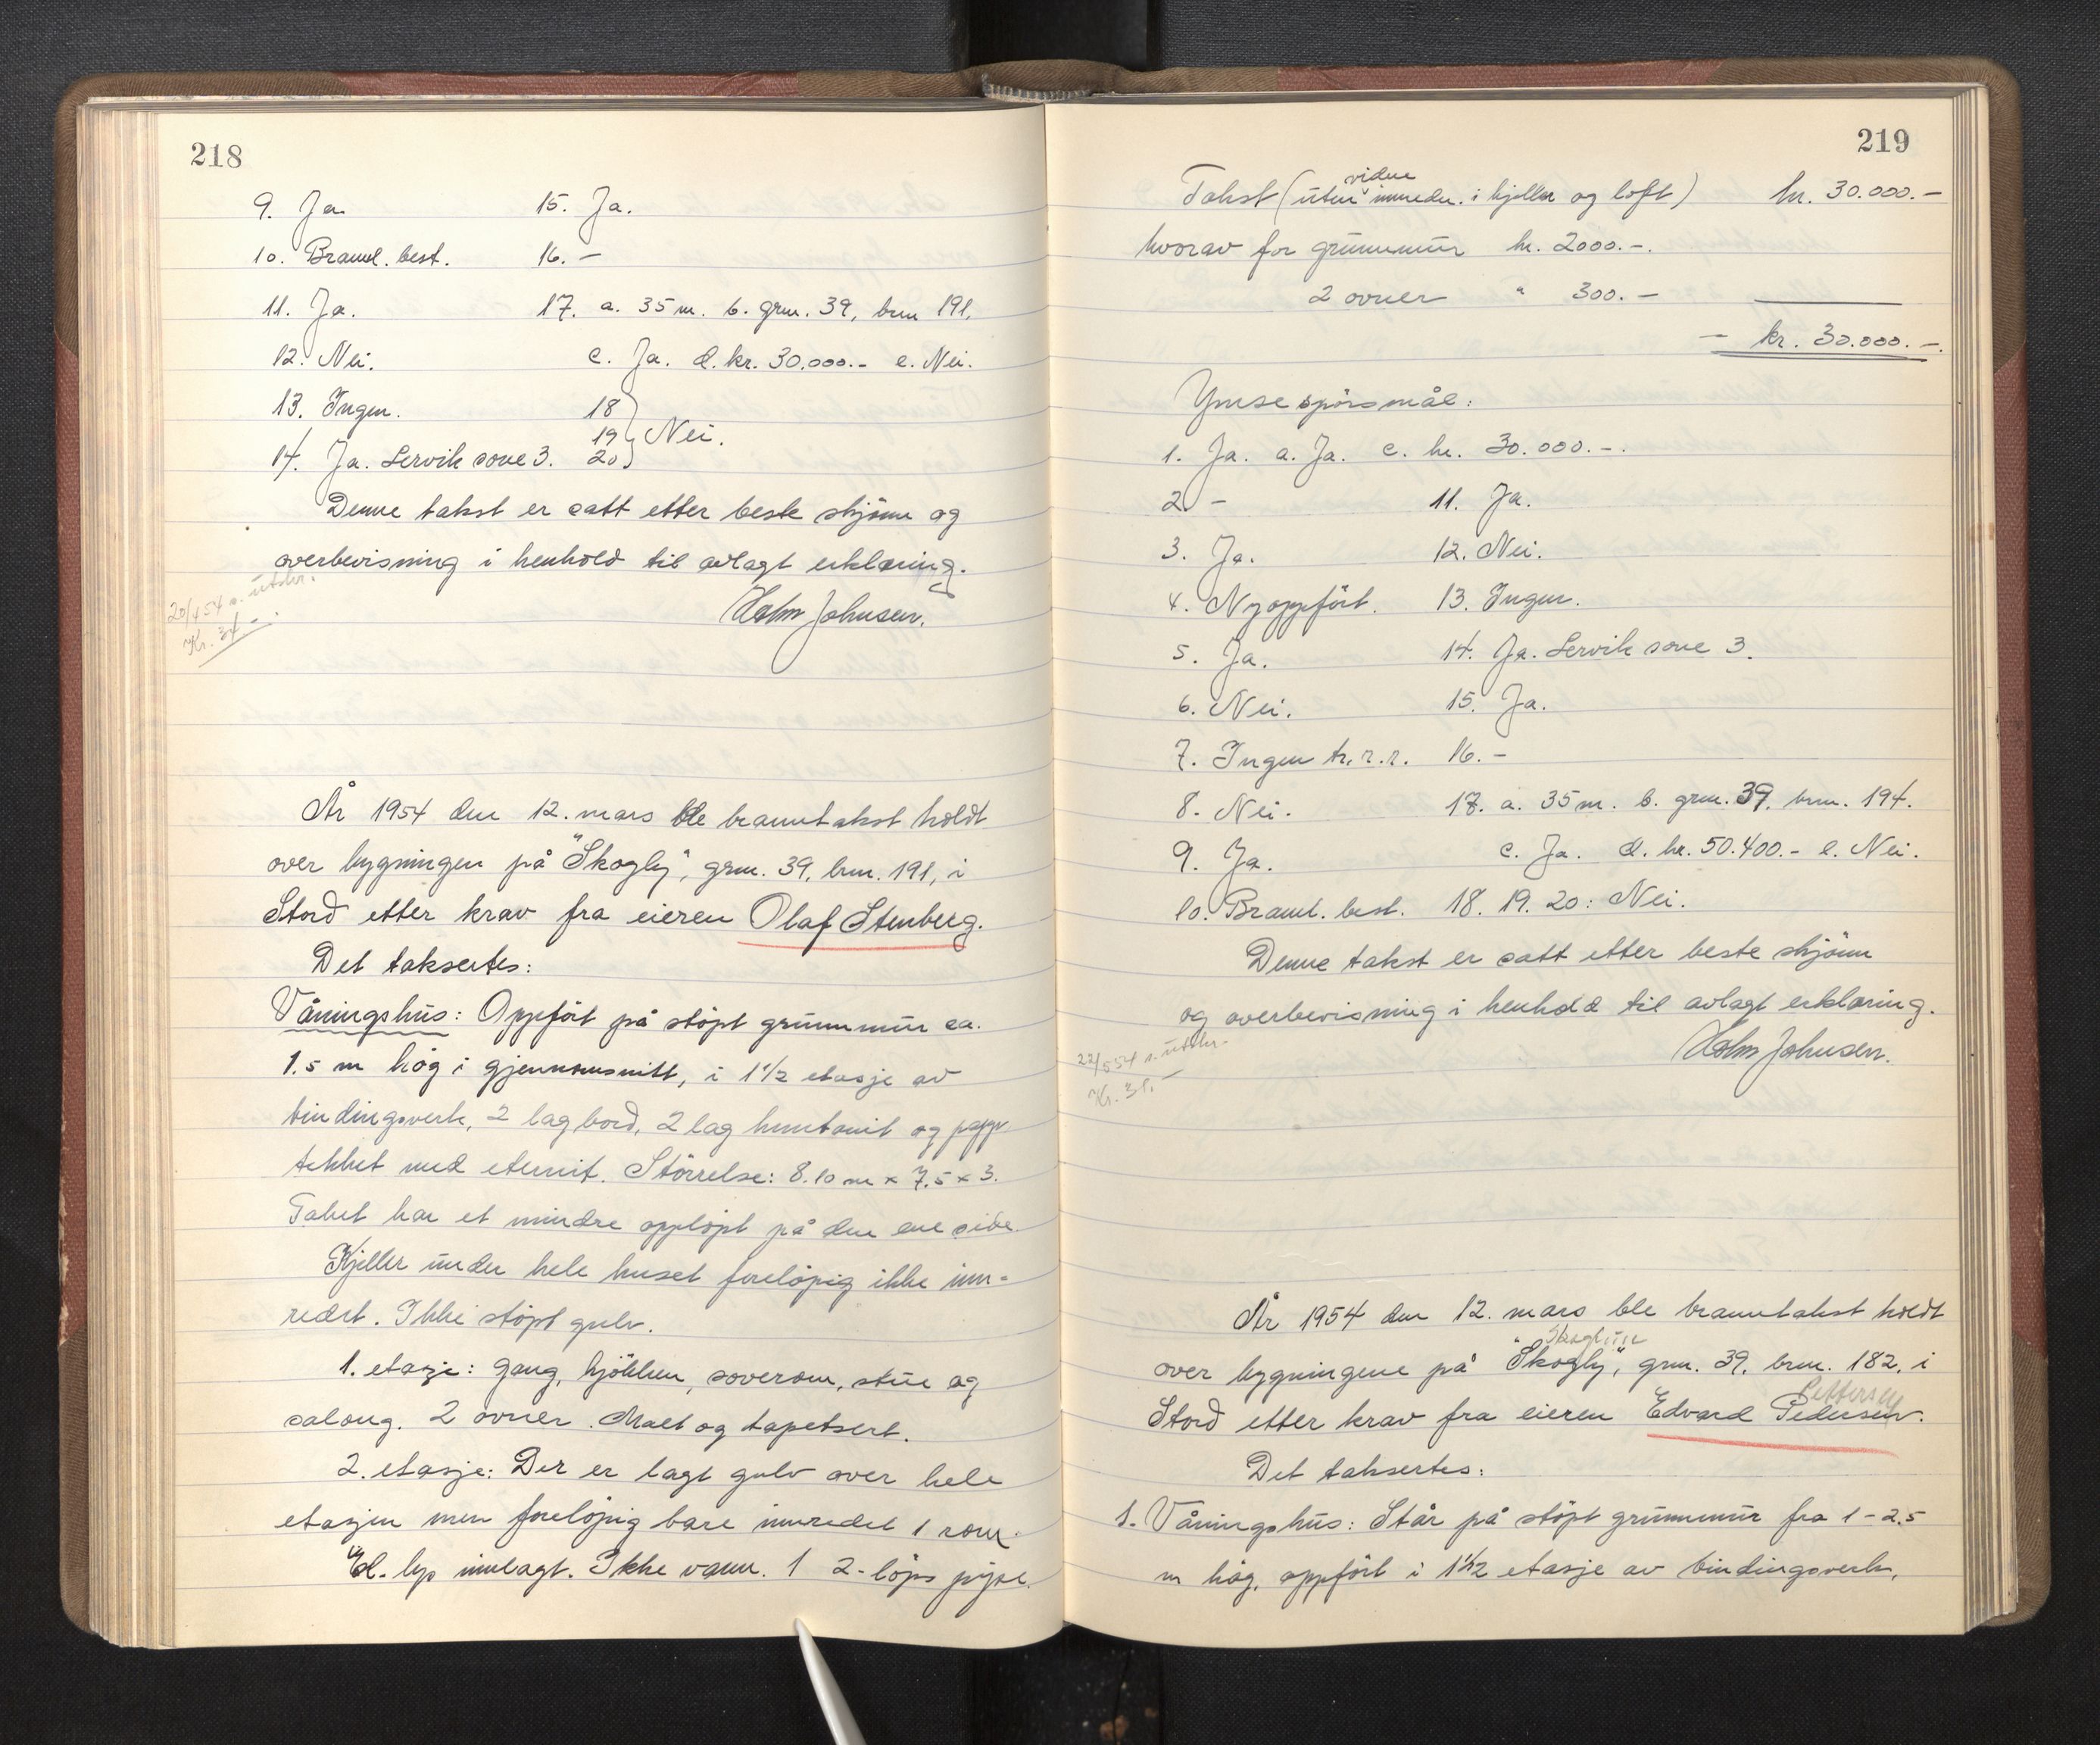 218
9. Ja. 15. Ja.
10. Brannl. best. 16. –
11. Ja. 17. a. 35 m. b. grnr. 39, bnr 191,
12. Nei. c. Ja. d. kr. 30.000.- e. Nei.
13. Ingen. 18
19 Nei.
14. Ja. Lervik sone 3. 20
Denne takst er satt etter beste skjönn og
overbevisning i henhold til avlagt erklæring.
20/4 54 s. utskr.
Kr. 34.-
Holm Johnsen.
År 1954 den 12. mars ble branntakst holdt
over bygningen på "Skogly", grnr. 39, bnr. 191, i
Stord etter krav fra eieren Olaf Stenberg.
Det taksertes:
Våningshus: Oppfört på stöpt grunnmur ca.
1.5 m hög i gjennomsnitt, i 1 1/2 etasje av
bindingsverk, 2 lag bord, 2 lag huntonit og papp
tekket med eternit. Störrelse: 8.10 m x 7.5 x 3.
Taket har et mindre opplöpt på den ene side.
Kjeller under hele huset forelöpig ikke inn-
redet. Ikke stöpt gulv.
1. etasje: gang, kjökken, soverom, stue og
salong. 2 ovner. Malt og tapetsert.
2. etasje: Der er lagt gulv over hele
etasjen men forelöpig bare innredet 1 rom.
El. lys innlagt. Ikke vann. 1 2-löps pipe.
219
videre
Takst (uten innredn. i kjeller og loft) kr. 30.000.–
hvorav for grunnmur kr. 2000.–.
2 ovner " 300.–
– kr. 30.000.–.
Ymse spörsmål:
1. Ja. a. Ja. c. kr. 30.000.–.
2. – 11. Ja.
3. Ja. 12. Nei.
4. Nyoppfört. 13. Ingen.
5. Ja. 14. Ja. Lervik sone 3.
6. Nei. 15. Ja.
7. Ingen tr.r.r. 16. –
8. Nei. 17. a. 35 m. b. grnr. 39. bnr. 194.
9. Ja. c. Ja. d. kr. 50.400.- e. Nei.
10. Brannl. best. 18. 19. 20: Nei.
Denne takst er satt etter beste skjönn
og overbevisning i henhold til avlagt erklæring.
22/5 54 s. utskr.
Kr. 31.–
Holm Johnsen.
År 1954 den 12. mars ble branntakst holdt
over bygningene på "Skogly", grnr. 39, bnr. 182, i
Pettersen
Stord etter krav fra eieren Edvard Pedersen.
Det taksertes:
1. Våningshus: Står på stöpt grunnmur fra 1 – 2.5
m hög, oppfört i 1 1/2 etasje av bindingsverk,